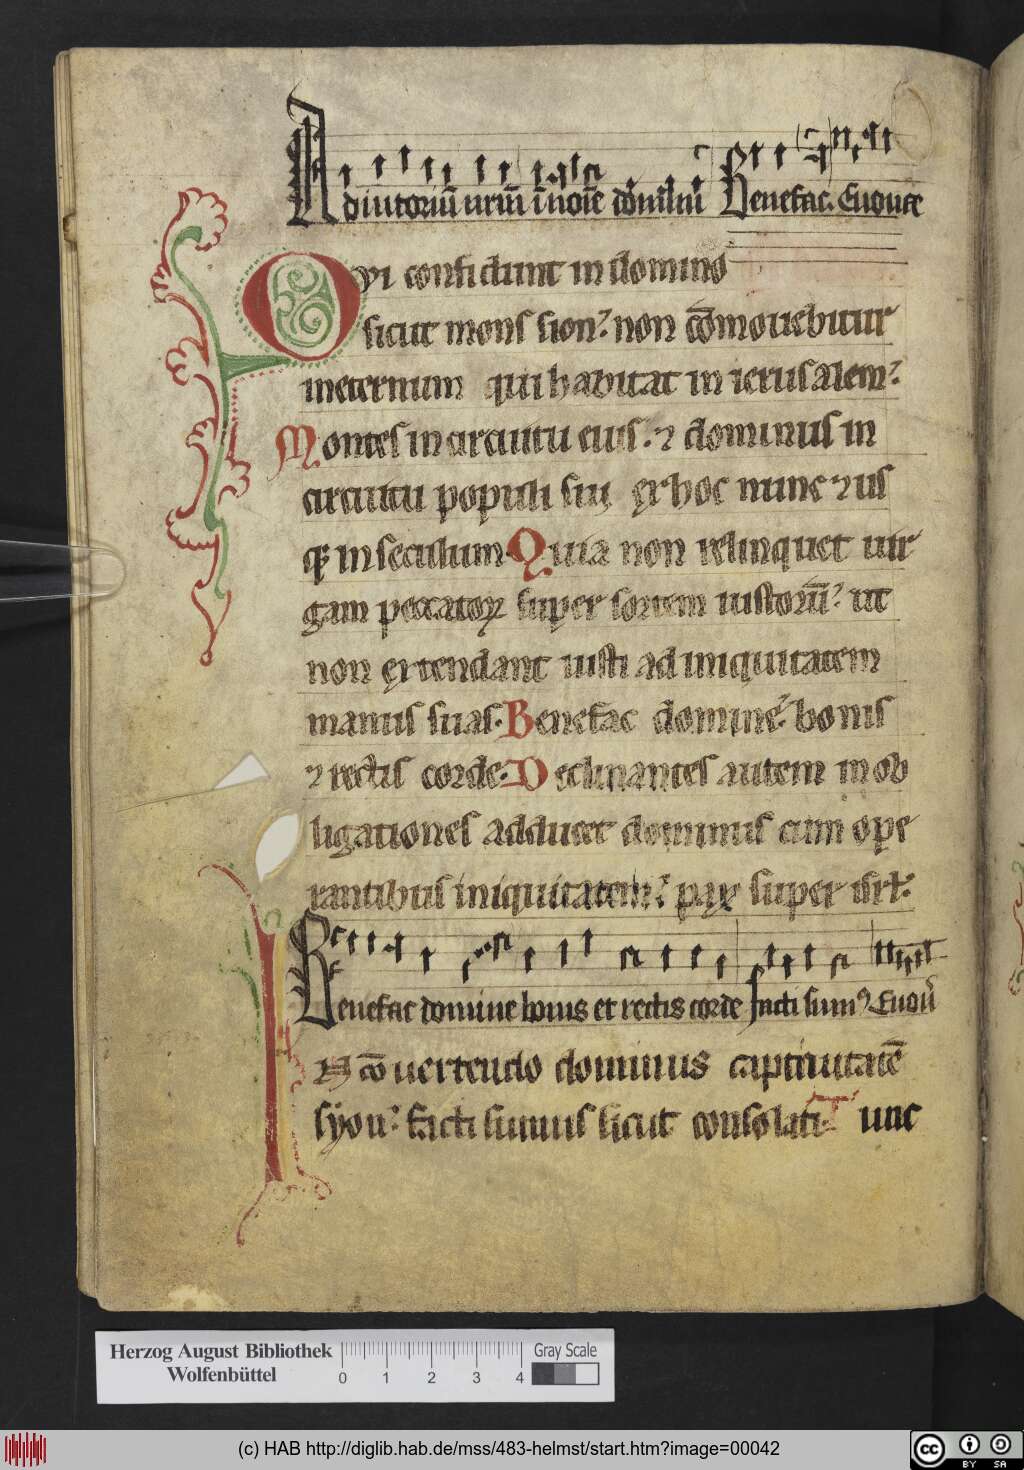 Adiutoriū nr̄m ī noīe dominī Benefac. Euouae
Qvi confidunt in domino
sicut mons sion. non cōmouebitur
ineternum qui habitat in ierusalem.
Montes in circuitu eius. ⁊ dominus in
circuitu populi sui ex hoc nunc ⁊ us
qꝫ in seculum. Quia non relinquet uir
gam peccatoꝝ super sortem iustorū. ut
non extendant iusti ad iniquitatem
manus suas. Benefac domine. bonis
⁊ rectis corde. Declinantes autem in ob
ligationes adducet dominus cum ope
rantibus iniquitatem. pax super isrl.
Benefac domine bonis et rectis corde Facti sumꝰ Euou
IN cōuertendo dominus captiuitatē
syon. facti sumus sicut consolati. Tunc
Herzog August Bibliothek
Wolfenbüttel
0 1 2 3 4
Gray Scale
(c) HAB http://diglib.hab.de/mss/483-helmst/start.htm?image=00042
cc BY SA